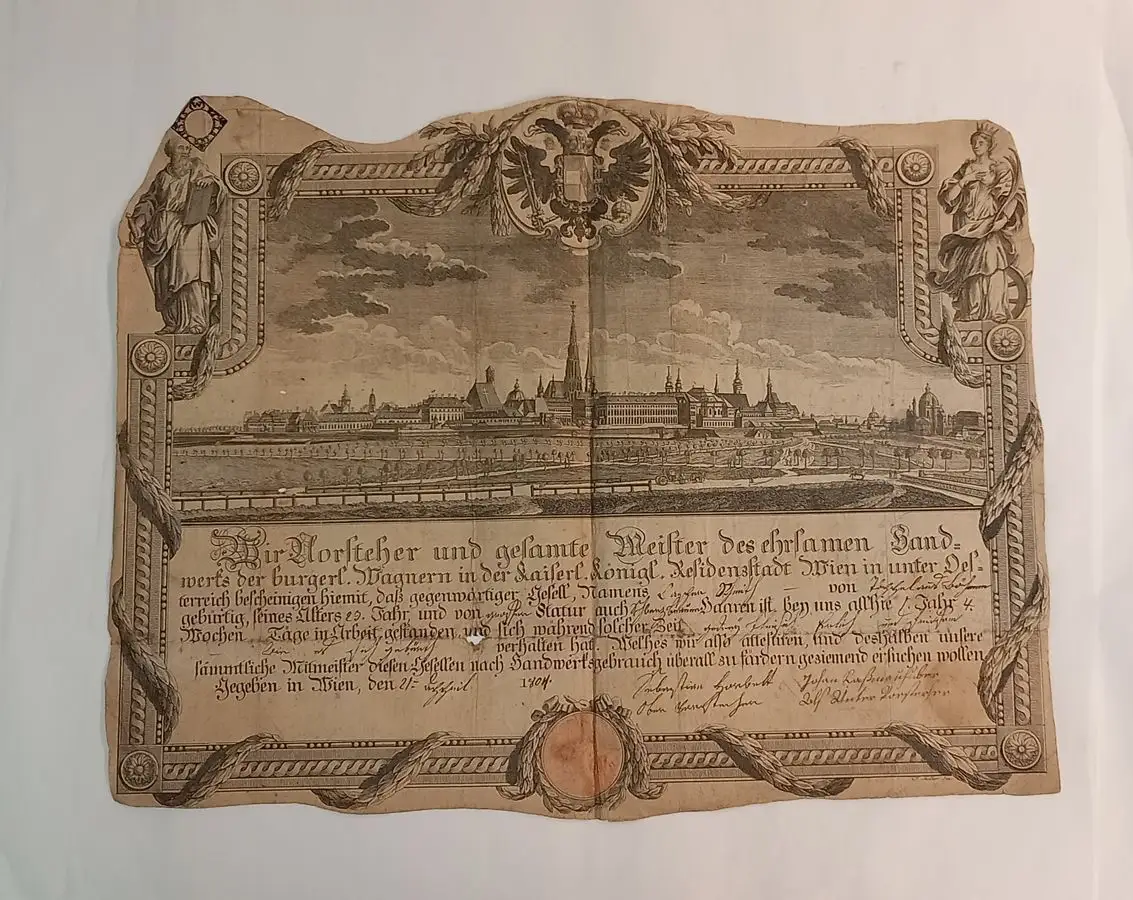 Wir Vorsteher und gesamte Meister des ehrsamen Hand=
werks der burgerl. Wagnern in der Kaiserl. Königl. Residenzstadt Wien in unter Oes=
terreich bescheinigen hiemit, daß gegenwärtiger Gesell, Namens Schmid von
gebürtig, seines Alters 23 Jahr, und von Statur auch Haaren ist bey uns allhie 1 Jahr 4
Wochen Tage in Arbeit gestanden, und sich während solcher Zeit
verhalten hat. Welches wir also attestiren, und deshalben unsere
sämmtliche Mitmeister diesen Gesellen nach Handwerksgebrauch überall zu fördern geziemend ersuchen wollen
Gegeben in Wien, den 21= 1804.
Sebastian Johan
Ober Vorsteher Unter Vorsteher